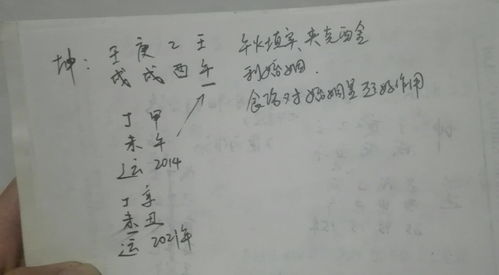 坤：壬庚乙壬 午火填实，夹克酉金
戌戌酉午 利婚姻.
食伤对婚姻呈好作用
丁甲
未午
运 2014
丁辛
未丑
运 2021年